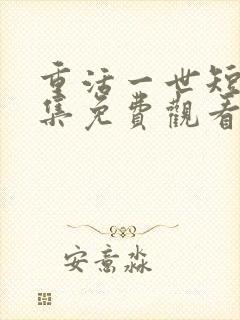 重活一世短
集免費觀看
安意淼